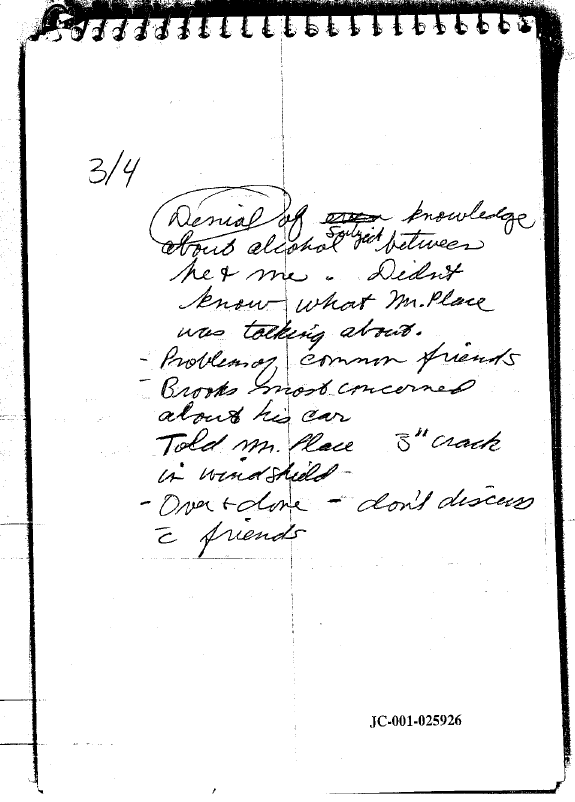 3/4
Denial of knowledge
Subject
about alcohol between
he & me. Didn't
know what Mr. Place
was talking about.
- Problem of common friends
- Brooks most concerned
about his car
Told Mr. Place 3" crack
in windshield -
- Over & done - don't discuss
c̄ friends
JC-001-025926